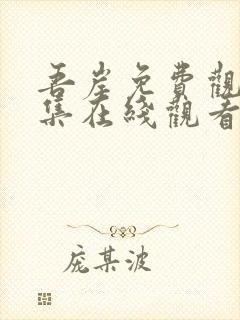 吾岸免費觀
集在綫觀看
龐某波